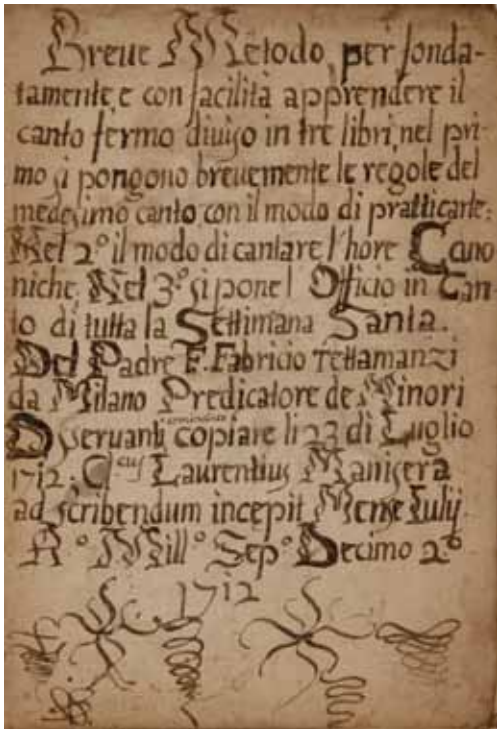 Breue Metodo, per fonda-
tamente, e con facilità apprendere il
canto fermo diuiso in tre libri, nel pri-
mo si pongono breuemente le regole del
medesimo canto, con il modo di pratticarle:
Nel 2º il modo di cantare l'hore Cano
niche, Nel 3.º si pone l'Officio in Can
to di tutta la Settimana Santa.
Del Padre F. Fabricio Tettamanzi
da Milano Predicatore de Minori
Osseruanti copiare li 23 di Luglio
1712: Laurentius Manisera
ad scribendum incepit Mense Iulij
Aº Millº Sepº Decimo 2º
1712